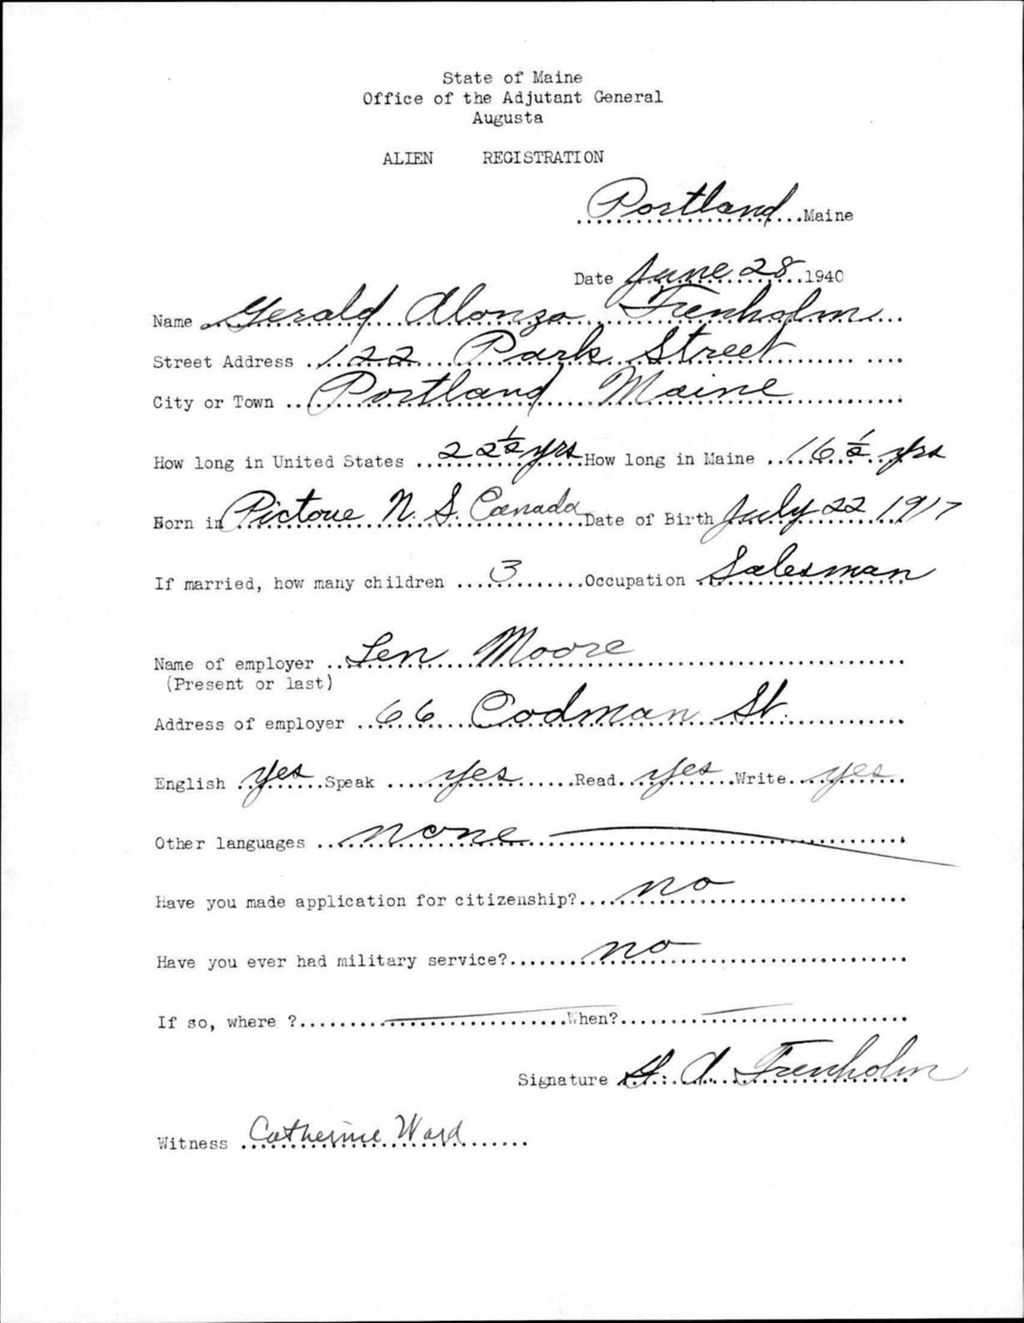 State of Maine
Office of the Adjutant General
Augusta
ALIEN REGISTRATION
Portland Maine
Date June 28 1940
Name Gerald Alonzo Trenholm
Street Address 122 Park Street
City or Town Portland Maine
How long in United States 22½ yrs How long in Maine 16½ yrs
Born in Pictoue N. S. Canada Date of Birth July 22 1917
If married, how many children 3 Occupation Salesman
Name of employer Len Moore
(Present or last)
Address of employer 66 Codman St.
English yes Speak yes Read yes Write yes
Other languages none
Have you made application for citizenship? no
Have you ever had military service? no
If so, where ? When?
Signature G. A. Trenholm
Witness Catherine Ward